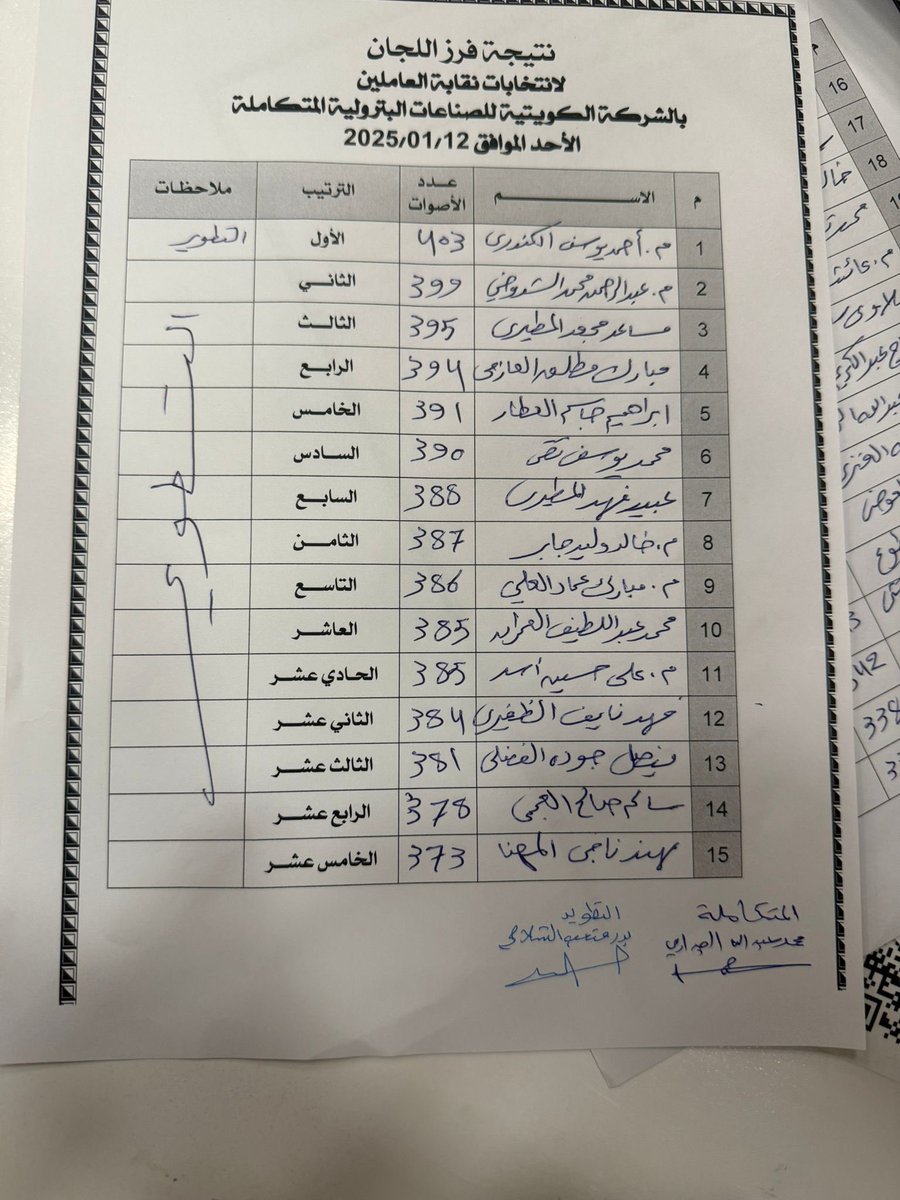 نتيجة فرز اللجان
لانتخابات نقابة العاملين
بالشركة الكويتية للصناعات البترولية المتكاملة
الأحد الموافق 2025/01/12
م الاســـم عـدد الأصوات الترتيب ملاحظات
1 م. أحمد يوسف الكندري 403 الأول التطوير
2 م. عبدالرحمن محمد 399 الثاني
3 مساعد محمد المطيري 395 الثالث
4 مبارك مطلق العازمي 394 الرابع
5 ابراهيم جاسم العطار 391 الخامس
6 محمد يوسف تقي 390 السادس
7 عبيد فهد المطيري 388 السابع
8 م. خالد وليد جابر 387 الثامن
9 م. مبارك عماد العلي 386 التاسع
10 محمد عبداللطيف 385 العاشر
11 م. علي حسين اسد 385 الحادي عشر
12 فهد نايف الظفيري 384 الثاني عشر
13 فيصل جوده الفضلي 381 الثالث عشر
14 سالم صالح العجمي 378 الرابع عشر
15 مهند ناجي المهنا 373 الخامس عشر
التطوير
المتكاملة
التطوير
16
17
18
338